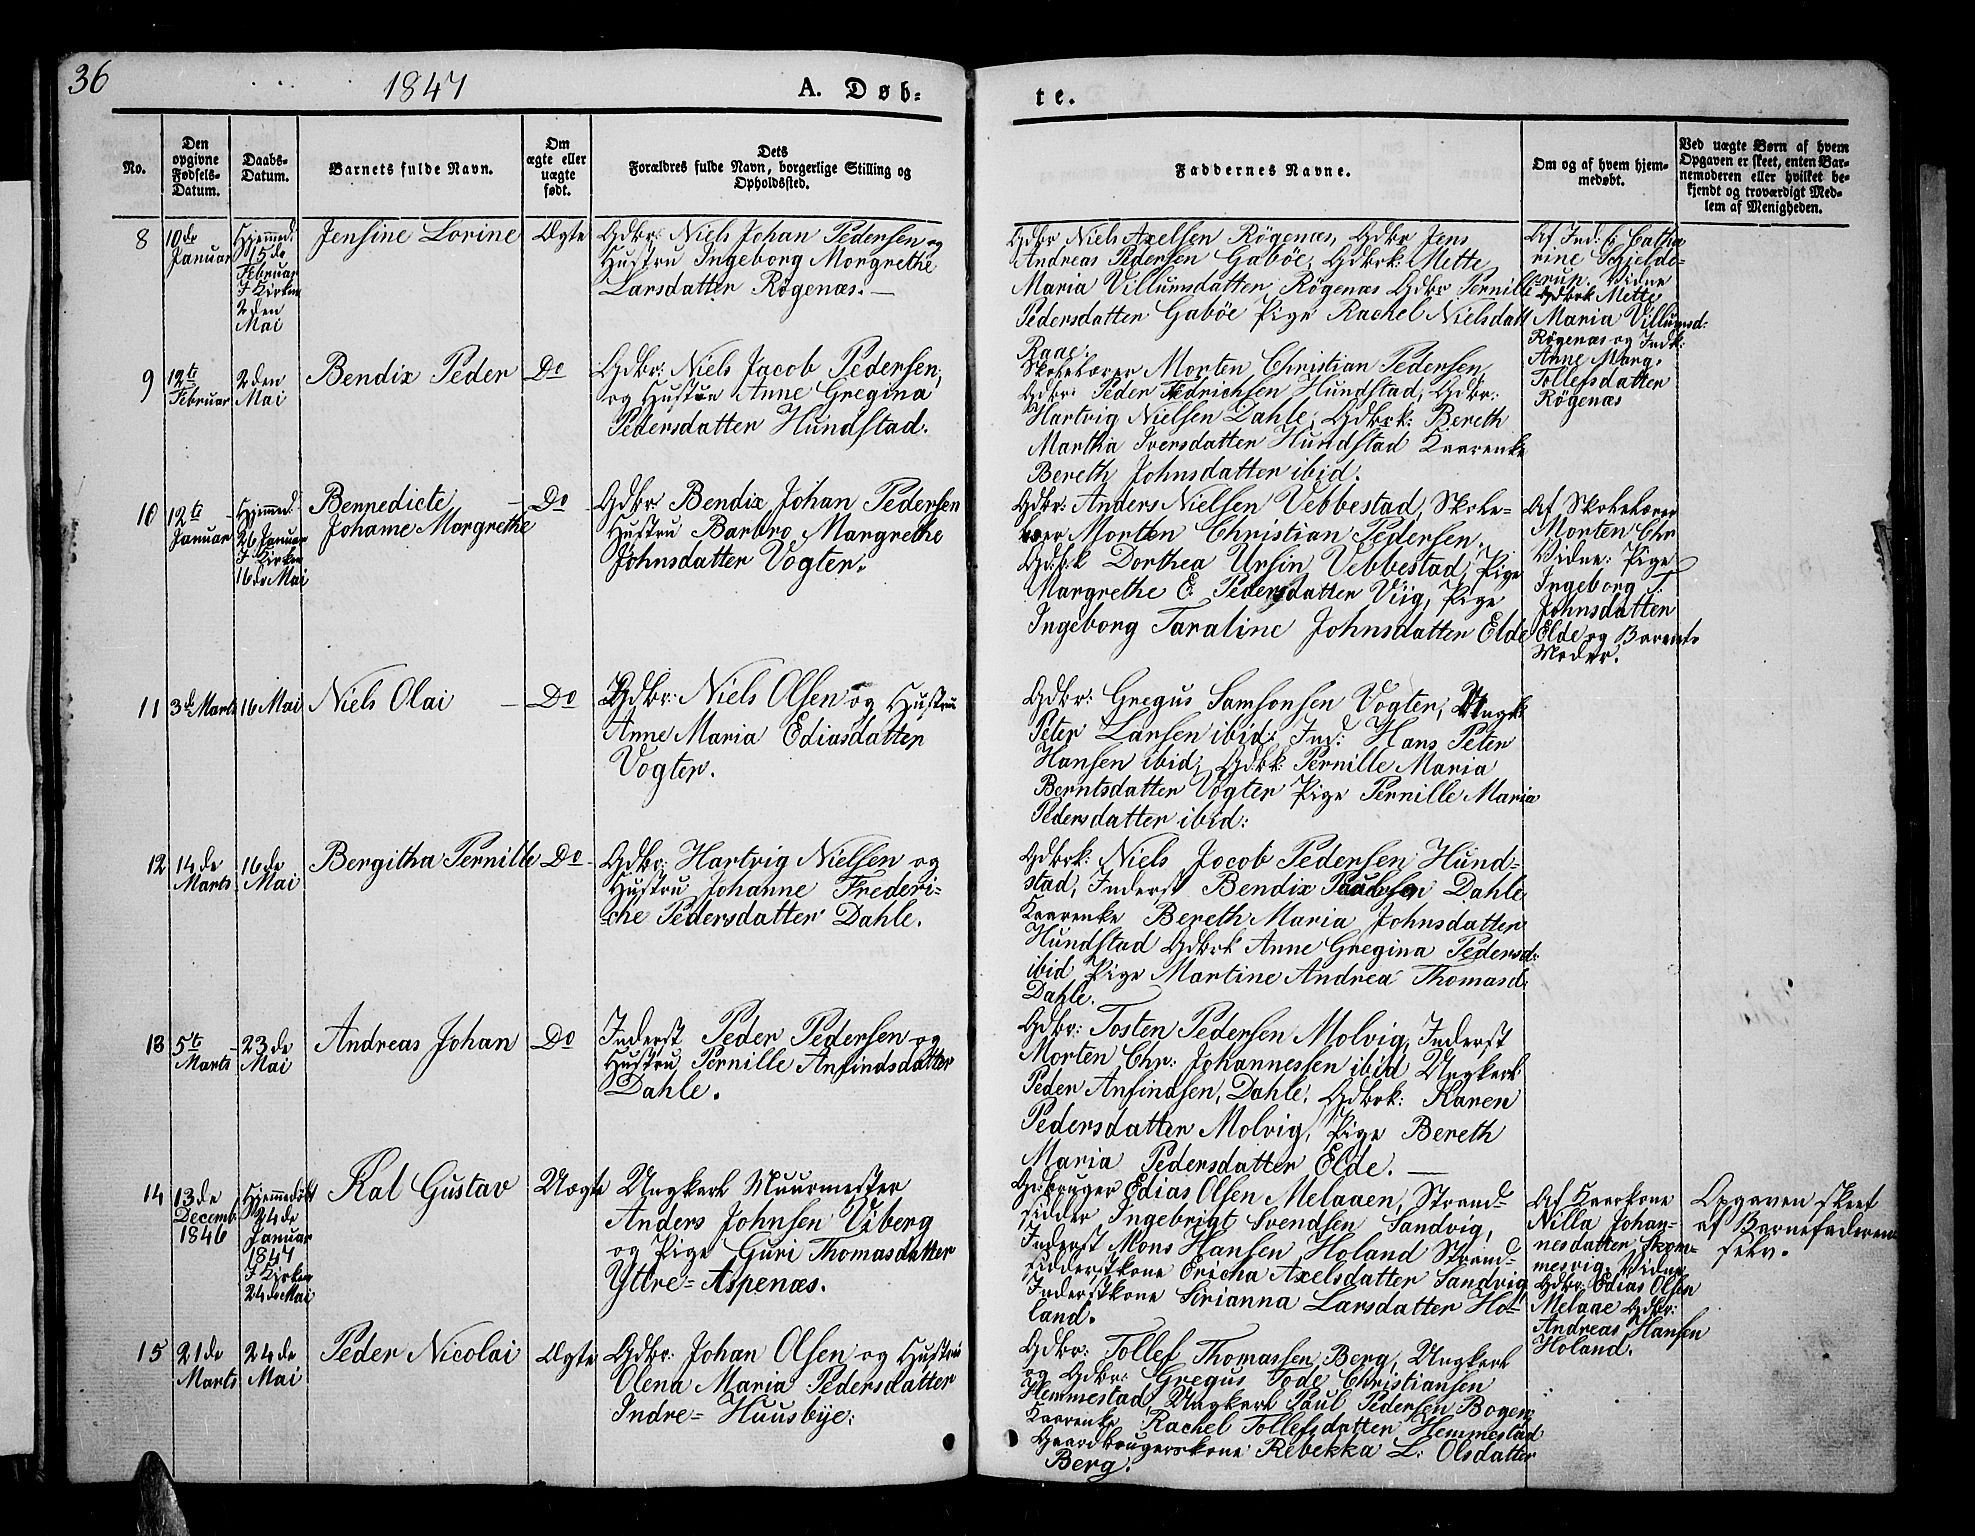 36
1847
A. Døb-
te.
No.
Den opgivne Fødsels-Datum.
Daabs-Datum.
Barnets fulde Navn.
Om ægte eller uægte født.
Dets Forældres fulde Navn, borgerlige Stilling og Opholdssted.
Faddernes Navne.
Om og af hvem hjemmedøbt.
Ved uægte Børn af hvem Opgaven er skeet, enten Barnemoderen eller hvilket bekjendt og troværdigt Medlem af Menigheden.
8
10de Januar
Hjemmed. 15de Februar I Kirken 2den Mai
Jensine Lorine
Ægte
Gdbr: Niels Johan Pedersen og
Hustru Ingeborg Margrethe
Larsdatter Røgenæs.
Gdbr Niels Axelsen Røgenæs, Gdbr Jens
Andreas Pedersen Gabøe, Gdbrk: Mette
Maria Villumsdatter Røgenæs Gdbr Pernille
Pedersdatter Gabøe Pige Rachel Nielsdatt
Raae.
Af Ind: Catha
rine Schjelde-
rup. Vidne
Gdbrk Mette
Maria Villumsd:
Røgenæs og Indk:
Anne Marg.
Tollefsdatter
Røgenæs
9
12te Februar
2den Mai
Bendix Peder
Do
Gdbr: Niels Jacob Pedersen,
og Hustru Anne Gregina
Pedersdatter Hundstad.
Skolelærer Morten Christian Pedersen,
Gdbr: Peder Fedrichsen Hundstad, Gdbr:
Hartvig Nielsen Dahle, Gdbrk: Bereth
Martha Iversdatter Hundstad Kaarenke
Bereth Johnsdatter ibid.
10
12te Januar
Hjemmed. 26 Januar I Kirken 16de Mai
Bennedicte
Johanne Margrethe
Do
Gdbr Bendix Johan Pedersen
Hustru Barbro Margrethe
Johnsdatter Vogter.
Gdbr: Anders Nielsen Vebbestad, Skole-
lærer Morten Christian Pedersen,
Gdbrk Dorthea Ursin Vebbestad, Pige
Margrethe E. Pedersdatter Viig, Pige
Ingeborg Taraline Johnsdatter Elde
Af Skolelærer
Morten Chr
Vidne: Pige
Ingeborg T
Johnsdatter
Elde og Barnets
Moder.
11
3de Marts
16 Mai
Niels Olai
Do
Gdbr: Niels Olsen og Hustru
Anne Maria Ediasdatter
Vogter.
Gdbr: Gregus Samsonsen Vogter, Ungk:
Peter Larsen ibid: Ind: Hans Peter
Hansen ibid, Gdbk: Pernille Maria
Berntsdatter Vogter Pige Pernille Maria
Pedersdatter ibid:
12
14de Marts
16de Mai
Bergitha Pernille
Do
Gdbr: Hartvig Nielsen og
Hustru Johanne Frederi-
che Pedersdatter Dahle.
Gdbrk: Niels Jocob Pedersen Hund-
stad, Inderst Bendix Paulsen Dahle
Kaarenke Bereth Maria Johnsdatter
Hundstad Gdbrk Anne Gregina Pedersd:
ibid Pige Martine Andrea Thomasd:
Dahle.
13
5te Marts
23de Mai
Andreas Johan
Do
Inderst Peder Pedersen og
Hustru Pernille Anfindsdatter
Dahle.
Gdbr: Tosten Pedersen Molvig, Inderst
Morten Chr: Johannessen ibid Ungkarl
Peder Anfindsen, Dahle, Gdbrk: Karen
Pedersdatter Molvig, Pige Bereth
Maria Pedersdatter Elde.
14
13de Decemb 1846
Hjemmedøbt 24de Januar 1847 I Kirken 24de Mai
Kal Gustav
Uægte
Ungkarl Muurmester
Anders Johnsen Viberg
og Pige Guri Thomasdatter
Yttre-Aspenæs.
Gdbruger Edias Olsen Melaaen, Strand-
sidder Ingebrigt Svendsen Sandvig,
Inderst Mons Hansen Holand Strand-
sidderskone Ericha Axelsdatter Sandvig
Inderstkone Sirianna Larsdatter Ho-
land.
Af Kaarkone
Nilla Johan-
nesdatter Skom-
mesvig. Vidne
Gdbr: Edias Olsen
Melaae Gdbr:
Andreas Hansen
Holand.
Opgaven skeet
af Barnefaderen
selv.
15
21de Marts
24de Mai
Peder Nicolai
Ægte
Gdbr: Johan Olsen og Hustru
Olena Maria Pedersdatter
Indre-Huusbye:
Gdbr: Tollef Thomassen Berg, Ungkarl
og Gdbr: Gregus Tode Christiansen
Hemmestad, Ungkarl Paul Pedersen Bogen,
Kaarenke Rachel Tollefsdatter Hemmestad
Gaardbrugerskone Rebekka L: Olsdatter
Berg.